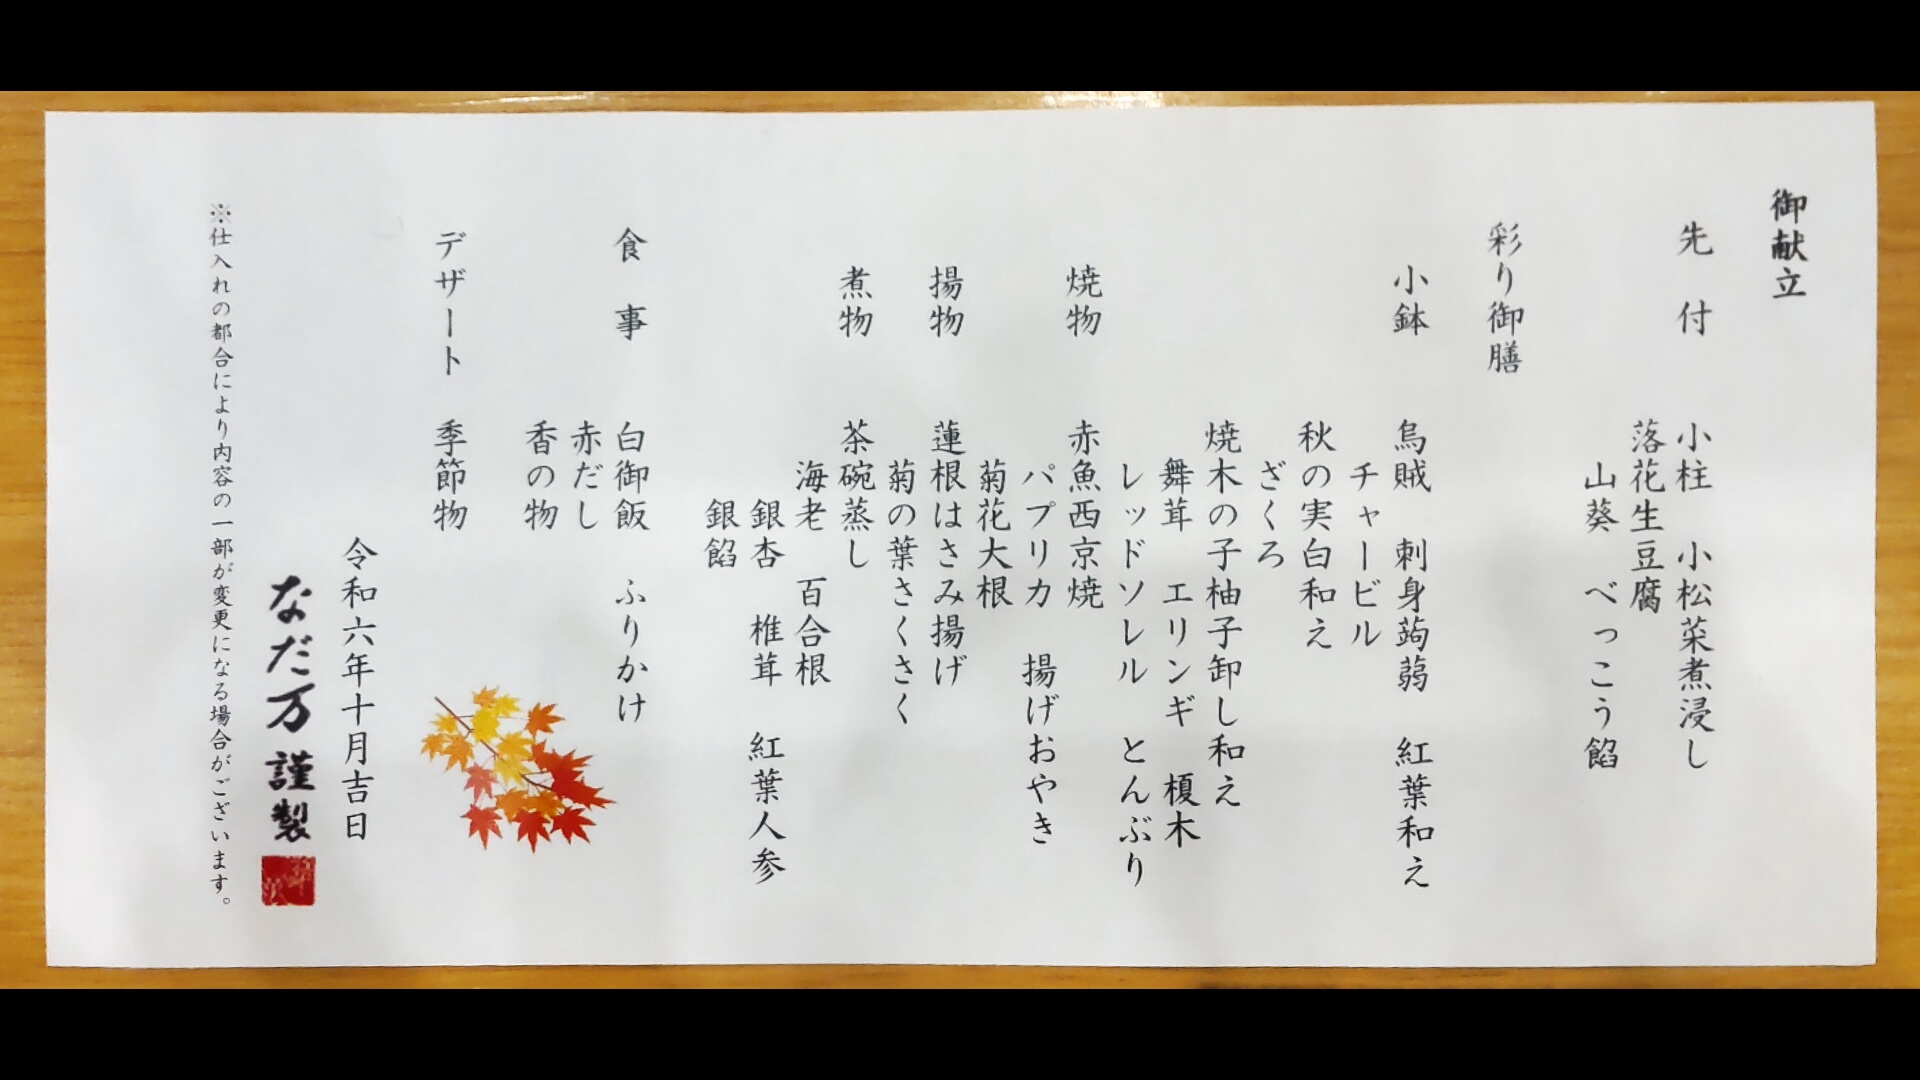 御献立
先 付 小柱 小松菜煮浸し
落花生豆腐
山葵 べっこう餡
彩り御膳
小鉢 烏賊 刺身蒟蒻 紅葉和え
チャービル
秋の実白和え
ざくろ
焼木の子柚子卸し和え
舞茸 エリンギ 榎木
レッドソレル とんぶり
焼物 赤魚西京焼
パプリカ 揚げおやき
菊花大根
揚物 蓮根はさみ揚げ
菊の葉さくさく
煮物 茶碗蒸し
海老 百合根
銀杏 椎茸 紅葉人参
銀餡
食 事 白御飯 ふりかけ
赤だし
香の物
デザート 季節物
令和六年十月吉日
なだ万 謹製
※仕入れの都合により内容の一部が変更になる場合がございます。